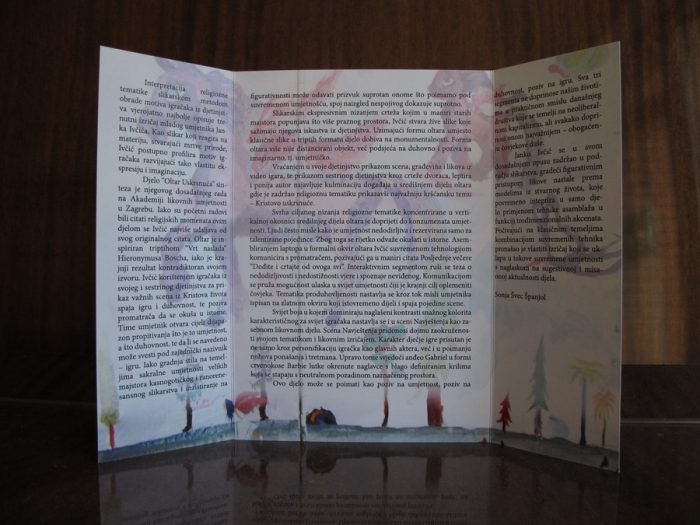 Interpretacija religiozne
tematike slikarskom metodom
obrade motiva igračaka iz djetinjs-
tva vjerojatno najbolje opisuje tre-
nutni izričaj mladog umjetnika Jan-
ka Ivčića. Kao slikar koji reagira na
materiju, stvarajući mrtve prirode,
Ivčić postupno profilira motiv ig-
račaka razvijajući tako vlastitu eks-
presiju i imaginaciju.
Djelo "Oltar Uskrsnuća" sin-
teza je njegovog dosadašnjeg rada
na Akademiji likovnih umjetnosti
u Zagrebu. Iako su početni radovi
bili citati religijskih momenata ovim
djelom se Ivčić najviše udaljava od
svog originalnog citata. Oltar je in-
spiriran triptihom "Vrt naslada"
Hieronymusa Boscha, iako je kra-
jnji rezultat kontradiktoran svojem
izvoru. Ivčić korištenjem igračaka iz
svojeg i sestrinog djetinjstva za pri-
kaz važnih scena iz Kristova života
spaja igru i duhovnost, te poziva
promatrača da se okuša u istome.
Time umjetnik otvara cijeli dijapa-
zon propitivanja što je to umjetnost,
a što duhovnost, te da li se navedeno
može svesti pod zajednički nazivnik
– igru. Iako gradnja stila na temel-
jima sakralne umjetnosti velikih
majstora kasnogotičkog i ranorene-
sansnog slikarstva i inzistiranje na
figurativnosti može odavati prizvuk suprotan onome što poimamo pod
suvremenom umjetnošću, spoj naizgled nespojivog dokazuje suprotno.
Slikarskim ekspresivnim nizanjem crteža kojim u maniri starih
majstora popunjava što više praznog prostora, Ivčić stvara žive slike koje
sažimaju njegova iskustva iz djetinjstva. Uzimajući formu oltara umjesto
klasične slike u triptih formatu djelo dobiva na monumentalnosti. Forma
oltara više nije distancirani objekt, već podsjeća na duhovno i poziva na
imaginarno, tj. umjetničko.
Vraćanjem u svoje djetinjstvo prikazom scena, građevina i likova iz
video igara, te prikazom sestrinog djetinjstva kroz crteže dvoraca, leptira
i ponija autor najavljuje kulminaciju događaja u središnjem djelu oltara
gdje je zadržao religioznu tematiku prikazavši najvažniju kršćansku temu
– Kristovo uskrsnuće.
Svrha ciljanog nizanja religiozne tematike koncentrirane u verti-
kalnoj okosnici središnjeg dijela oltara je doprijeti do konzumenata umjet-
nosti. Ljudi često misle kako je umjetnost nedodirljiva i rezervirana samo za
talentirane pojedince. Zbog toga se rijetko odvaže okušati u istome. Asem-
bliranjem laptopa u formalni okvir oltara Ivčić suvremenom tehnologijom
komunicira s promatračem, pozivajući ga u maniri citata Posljednje večere
"Dođite i crtajte od ovoga svi". Interaktivnim segmentom ruši se teza o
nedodirljivosti i nedostižnosti vjere i spoznaje neviđenog. Komunikacijom
se pruža mogućnost ulaska u svijet umjetnosti čiji je krajnji cilj oplemeniti
čovjeka. Tematika produhovljenosti nastavlja se kroz tok misli umjetnika
ispisan na zlatnom okviru koji istovremeno dijeli i spaja pojedine scene.
Svijet boja u kojem dominiraju naglašeni kontrasti snažnog kolorita
karakterističnog za svijet igračaka nastavlja se i u sceni Navještenja kao za-
sebnom likovnom djelu. Scena Navještenja pridonosi dojmu zaokruženos-
ti svojom tematikom i likovnim izričajem. Karakter dječje igre prisutan je
ne samo kroz personifikaciju igračka kao glavnih aktera, već i u poimanju
njihova ponašanja i tretmana. Upravo tome svjedoči anđeo Gabriel u formi
crvenokose Barbie lutke okrenute naglavce s blago definiranim krilima
koja se stapaju s neutralnom pozadinom naznačenog prostora.
Ovo djelo može se poimati kao poziv na umjetnost, poziv na
duhovnost, poziv na igru. Sva tri
segmenta ne doprinose našim životi-
ma u praktičnom smislu današnjeg
društva koje se temelji na neoliberal-
nom kapitalizmu, ali svakako doprі-
nose onom najvažnijem – obogaćen-
ju čovjekove duše.
Janko Ivčić se u svom
dosadašnjem opusu zadržao u pod-
ručju slikarstva, gradeći figurativnim
pristupom likove nastale prema
modelima iz stvarnog života, koje
povremeno integrira u samo dje-
lo primjenom tehnike asamblaža u
funkciji trodimenzionalnih akcenata.
Počivajući na klasičnim temeljima
kombinacijom suvremenih tehnika
pronašao je vlastiti izričaj koji se uk-
lapa u tokove suvremene umjetnosti
s naglaskom na sugestivnoj i misa-
onoj aktualnosti djela.
Sonja Švec Španjol